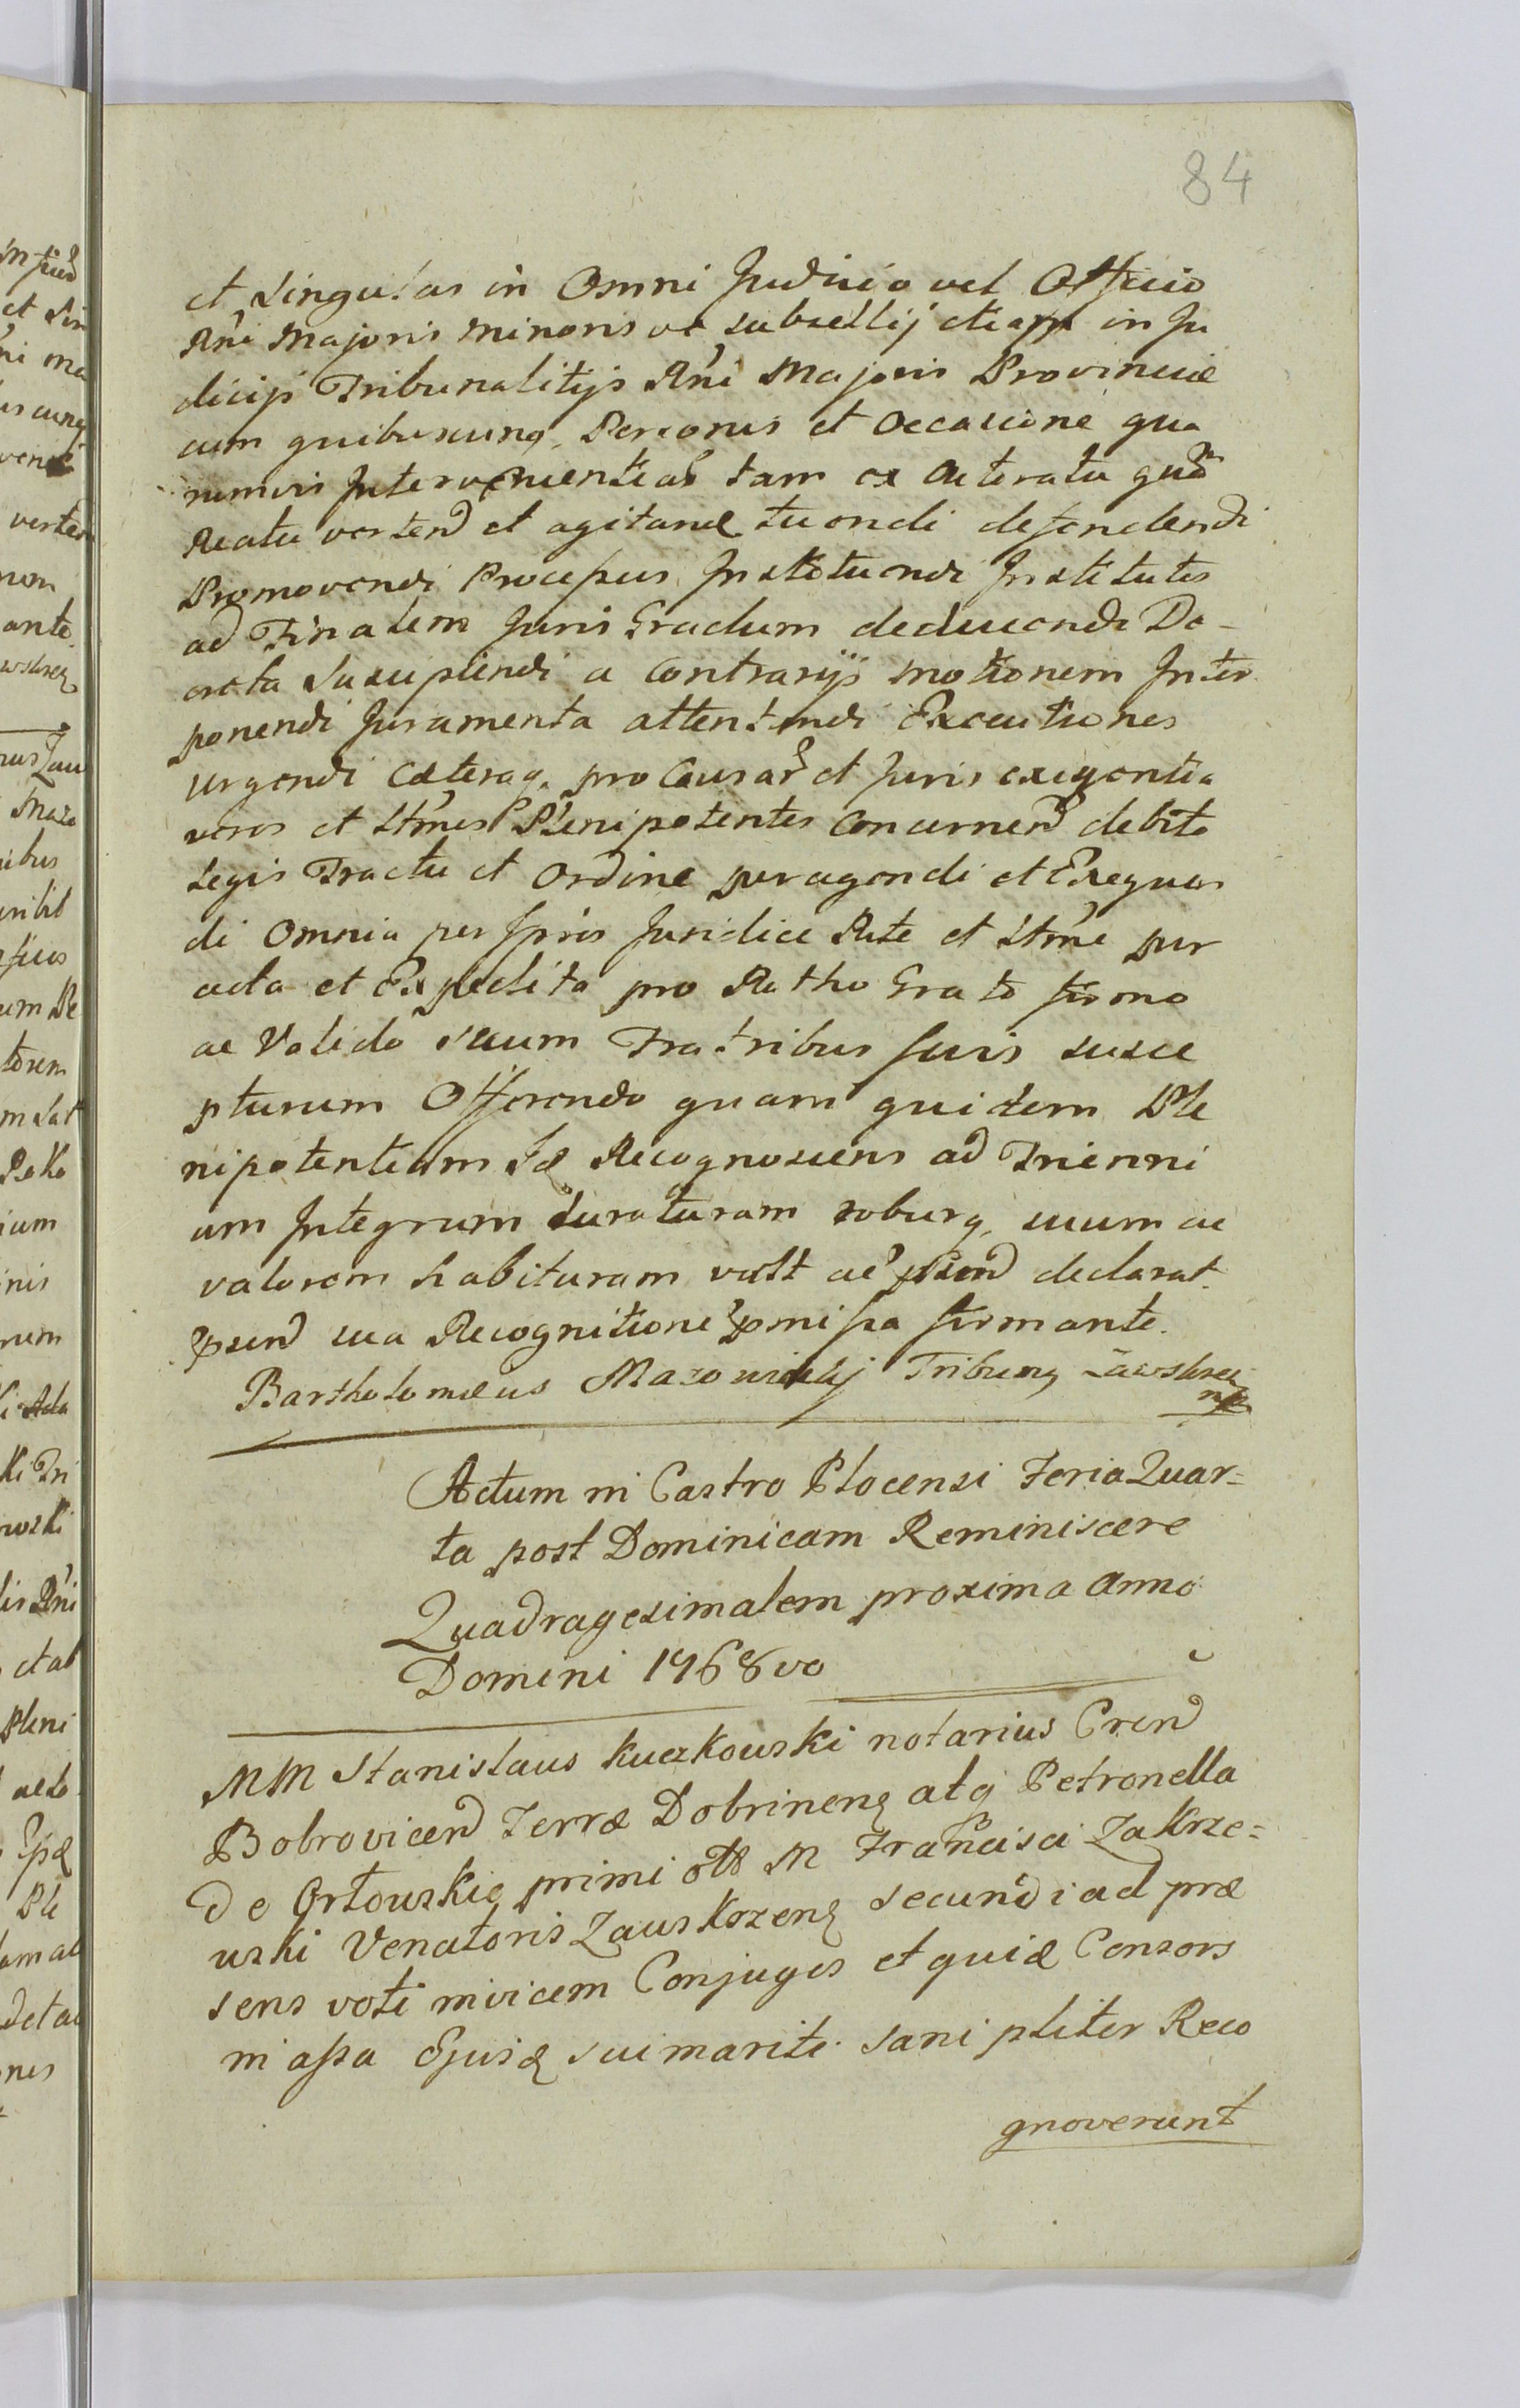 84
et Singulas in Omni Judicio vel Officio
Rni Majoris Minoris ve subsellij etiam in Ju
dicijs Tribunalitijs Rni Majoris Provinciæ
cum quibuscunq Personis et Occasione qua
rumvis Intervenientias tam ex Actoratu quã
Reatu vertend et agitand tuendi defendendi
Promovendi Processus Instituendi Institutes
ad Finalem Juris Gradum deducendi De-
creta Suscipiendi a Contrarijs motionem Inter
ponendi Juramenta attentandi Executiones
Urgendi Cæteraq. pro Causar et Juris exigentia
veros et Ltmes Plenipotentes Concernend debito
Legis Tractu et Ordine peragendi et Exequen
di Omnia per Ipsos Juridice Rite et Ltme per
acta et Expedita pro Ratho Grato firmo
ac Valido secum Fratribus suis susce
pturum Offerendo quam quidem Ple
nipotentiam Id Recognoscens ad Trienni
um Integrum duraturam roburq, suum ac
valorem habituram vult ac psend declarat.
psend sua Recognitione pmissa firmante.
Bartholomæus Mazowiecki Tribung Zawskrzen
mp
Actum in Castro Plocensi Feria Quar=
ta post Dominicam Reminiscere
Quadragesimalem proxima Anno
Domini 1768vo
MM Stanislaus Kuczkowski notarius Crend
Bobrovicend Terræ Dobrinens atq Petronella
De Orłowskie primi otto M Francisci Zakrze=
wski Venatoris Zawskrzens secundi ad præ
sens voti invicem Conjuges et quidæ Consors
in assa Ejusd sui mariti. sani pliter Reco
gnoverunt